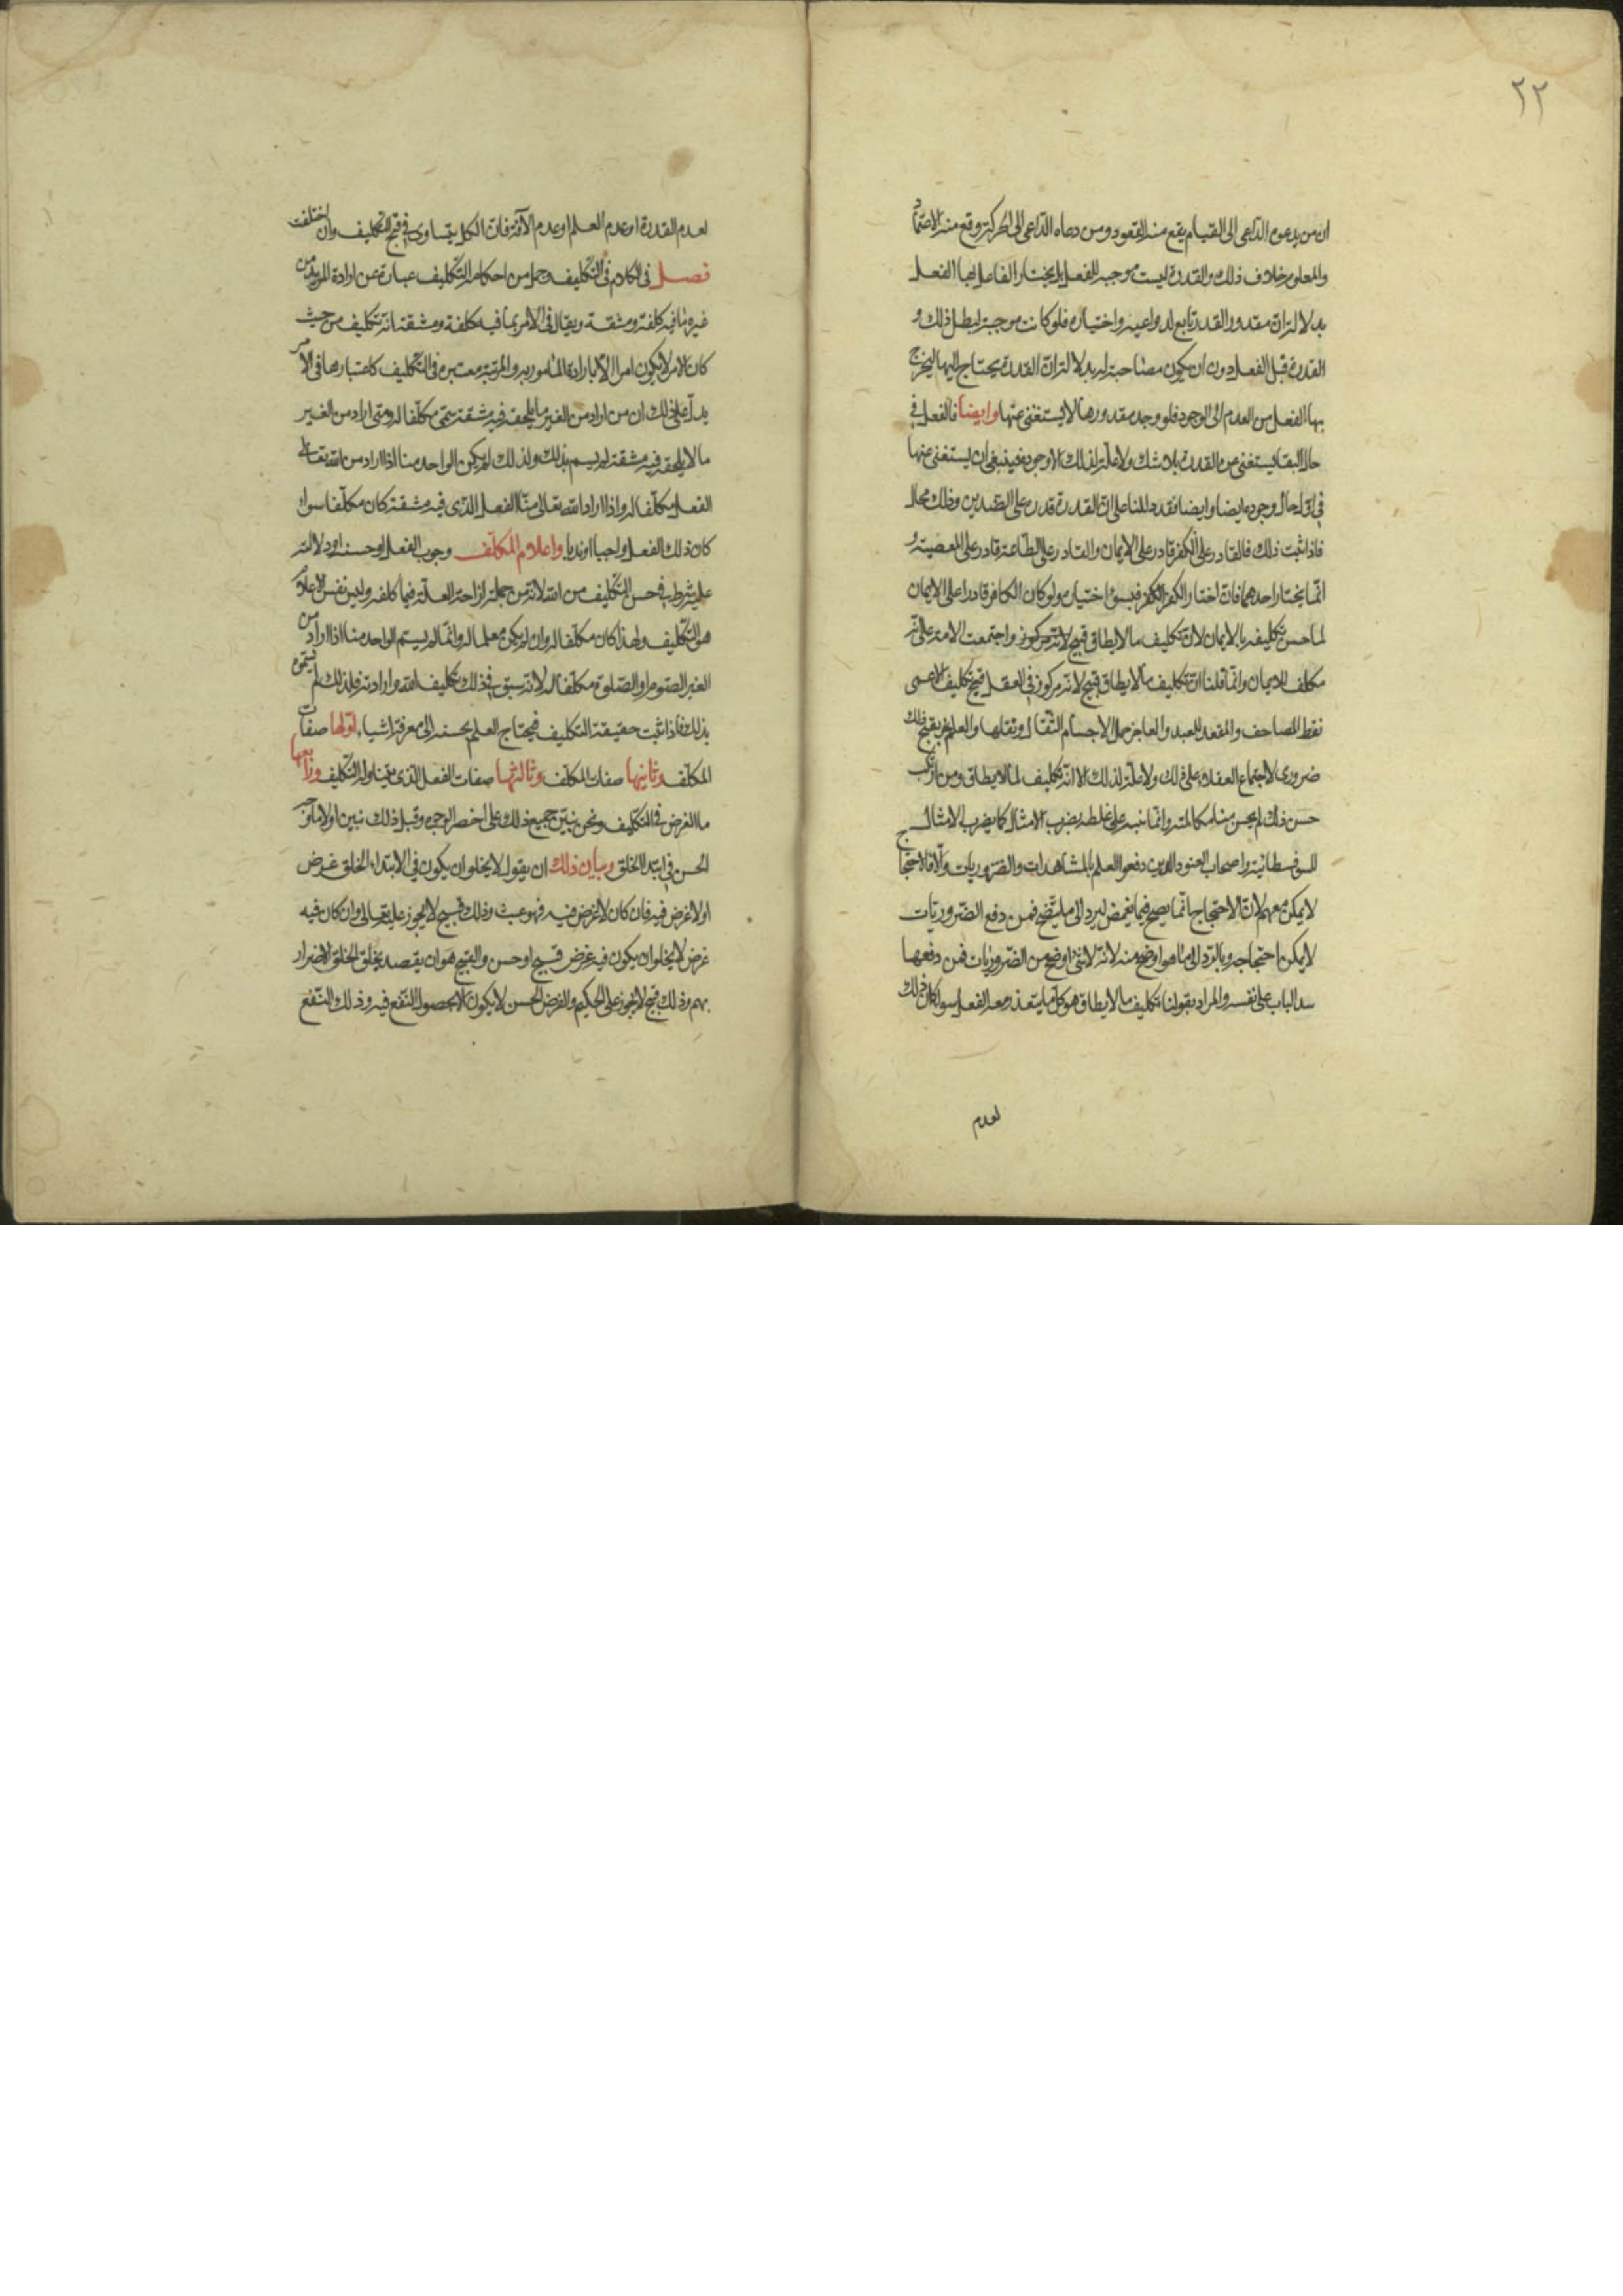 ٢٢
ان من يدعوه الداعى الى القيام يقع منه القعود ومن دعاه الداعى الى الحركة وقع منه الاعتماد
والمعلوم خلاف ذلك والقدرة ليست موجبه للفعل بل يختار الفاعل بها الفعل
بدلالة انّ مقدور القدر تابع لدواعيه واختياره فلو كانت موجبة لبطل ذلك و
القدرة قبل الفعل دون ان يكون مصاحبة له بدلالة انّ القدرة يحتاج اليها ليخرج
بها الفعل من العدم الى الوجود فلو وجد مقدورها لاستغنى عنها وايضا فالفعل في
حال البقا يستغنى من القدرة بلا شك ولا علّة لذلك الا وجوده فينبغى ان يستغنى عنها
في اوّل حال وجوده ايضا وايضا فقد دللنا على انّ القدرة قدرة على الضّدين وذلك محال
فاذا ثبت ذلك فالقادر على الكفر قادر على الايمان والقادر على الطّاعة قادر على المعصية و
انّما يختار احدهما فان اختار الكفر فبسوء اختياره ولو كان الكافر قادرا على الايمان
لما حسن تكليفه بالايمان لانّ تكليف ما لا يطاق قبيح لانّه مركوز واجتمعت الامة على انّه
مكلف للايمان وانّما قلنا انّ تكليف ما لا يطاق قبيح لانه مركوز في العقل قبح تكليف الاعمى
نقط المصاحف والمقعد العبد والعاجز حمل الاجسام الثّقال ونقلها والعلم بقبح ذلك
ضرورى لاجتماع العقلاء على ذلك ولا علّة لذلك الا انّه تكليف لما لا يطاق ومن ارتكب
حسن ذلك لم يحسن منا مكالمته وانّما ننبه على غلطه بضرب الامثال كما يضرب الامثال
للسوفسطائية واصحاب العنود الذين دفعوا العلم بالمشاهدات والضّروريات والّا فالاحتجاج
لا يمكن معهم لانّ الاحتجاج انّما يصح فيما يغمض ليرد الى ما يتّضح فمن دفع الضّروريّات
لا يمكن احتجاجه وبالرّد الى ما هو اوضح منه لانّه لا شئ اوضح من الضّروريات فمن دفعها
سد الباب على نفسه والمراد بقولنا تكليف ما لا يطاق هو كلّ ما يتعذر معه الفعل سواء كان ذلك
لعدم
لعدم القدرة او عدم العلم او عدم الآلة فانّ الكل يتساوى في قبح التّكليف وان اختلفت
فصل فى الكلام فى التّكليف وجمل من احكامه التّكليف عبارة عن ارادة المريد من
غيره ما فيه كلفة ومشقة ويقال فى الامر بما فيه كلفة ومشقة انّه تكليف من حيث
كان الامر لا يكون امرا الّا بارادة المأمور به والرتبة معتبره فى التّكليف كاعتبارها فى الامر
يدلّ على ذلك ان من اراد من الغير ما يلحقه فيه مشقة سمّى مكلّفا له ومتى اراد من الغير
ما لا يلحقه فيه مشقة لم يسم بذلك ولذلك لم يكن الواحد منا اذا اراد من الله تعالى
الفعل مكلّفا له واذا اراد الله تعالى منّا الفعل الّذى فيه مشقة كان مكلّفا سواء
كان ذلك الفعل واجبا او ندبا واعلام المكلّف وجوب الفعل او حسنه او دلالته
عليه شرط فى حسن التّكليف من الله لانّه من جملة ازاحة العلّة فيما كلفه وليس نفس الاعلام
هو التّكليف ولهذا كان مكلّفا له وان لم يكن معلما له وانّما لم يسم الواحد منا اذا اراد من
الغير الصّوم او الصّلوة مكلّفا له لانه سبق فى ذلك تكليف الله وارادته فلذلك لم يسموه
بذلك فاذا ثبت حقيقة التكليف فيحتاج العلم بحسنه الى معرفة اشياء اوّلها صفات
المكلّف وثانيها صفات المكلّف وثالثها صفات الفعل الّذى يتناوله التّكليف ورابعها
ما الغرض فى التّكليف ونحن نبيّن جميع ذلك على اخصر الوجوه وقبل ذلك نبين اوّلا ما وجه
الحسن فى ابتدا الخلق وبيان ذلك ان يقول لا يخلو ان يكون فى الابتداء الخلق غرض
او لا غرض فيه فان كان لا غرض فيه فهو عبث وذلك قبيح لا يجوز عليه تعالى وان كان فيه
غرض لا يخلو ان يكون فيه غرض قبيح او حسن والقبيح هو ان يقصد بخلق الخلق الاضرار
بهم وذلك قبيح لا يجوز على الحكيم والغرض الحسن لا يكون الّا لحصول النّفع فيه وذلك النّفع